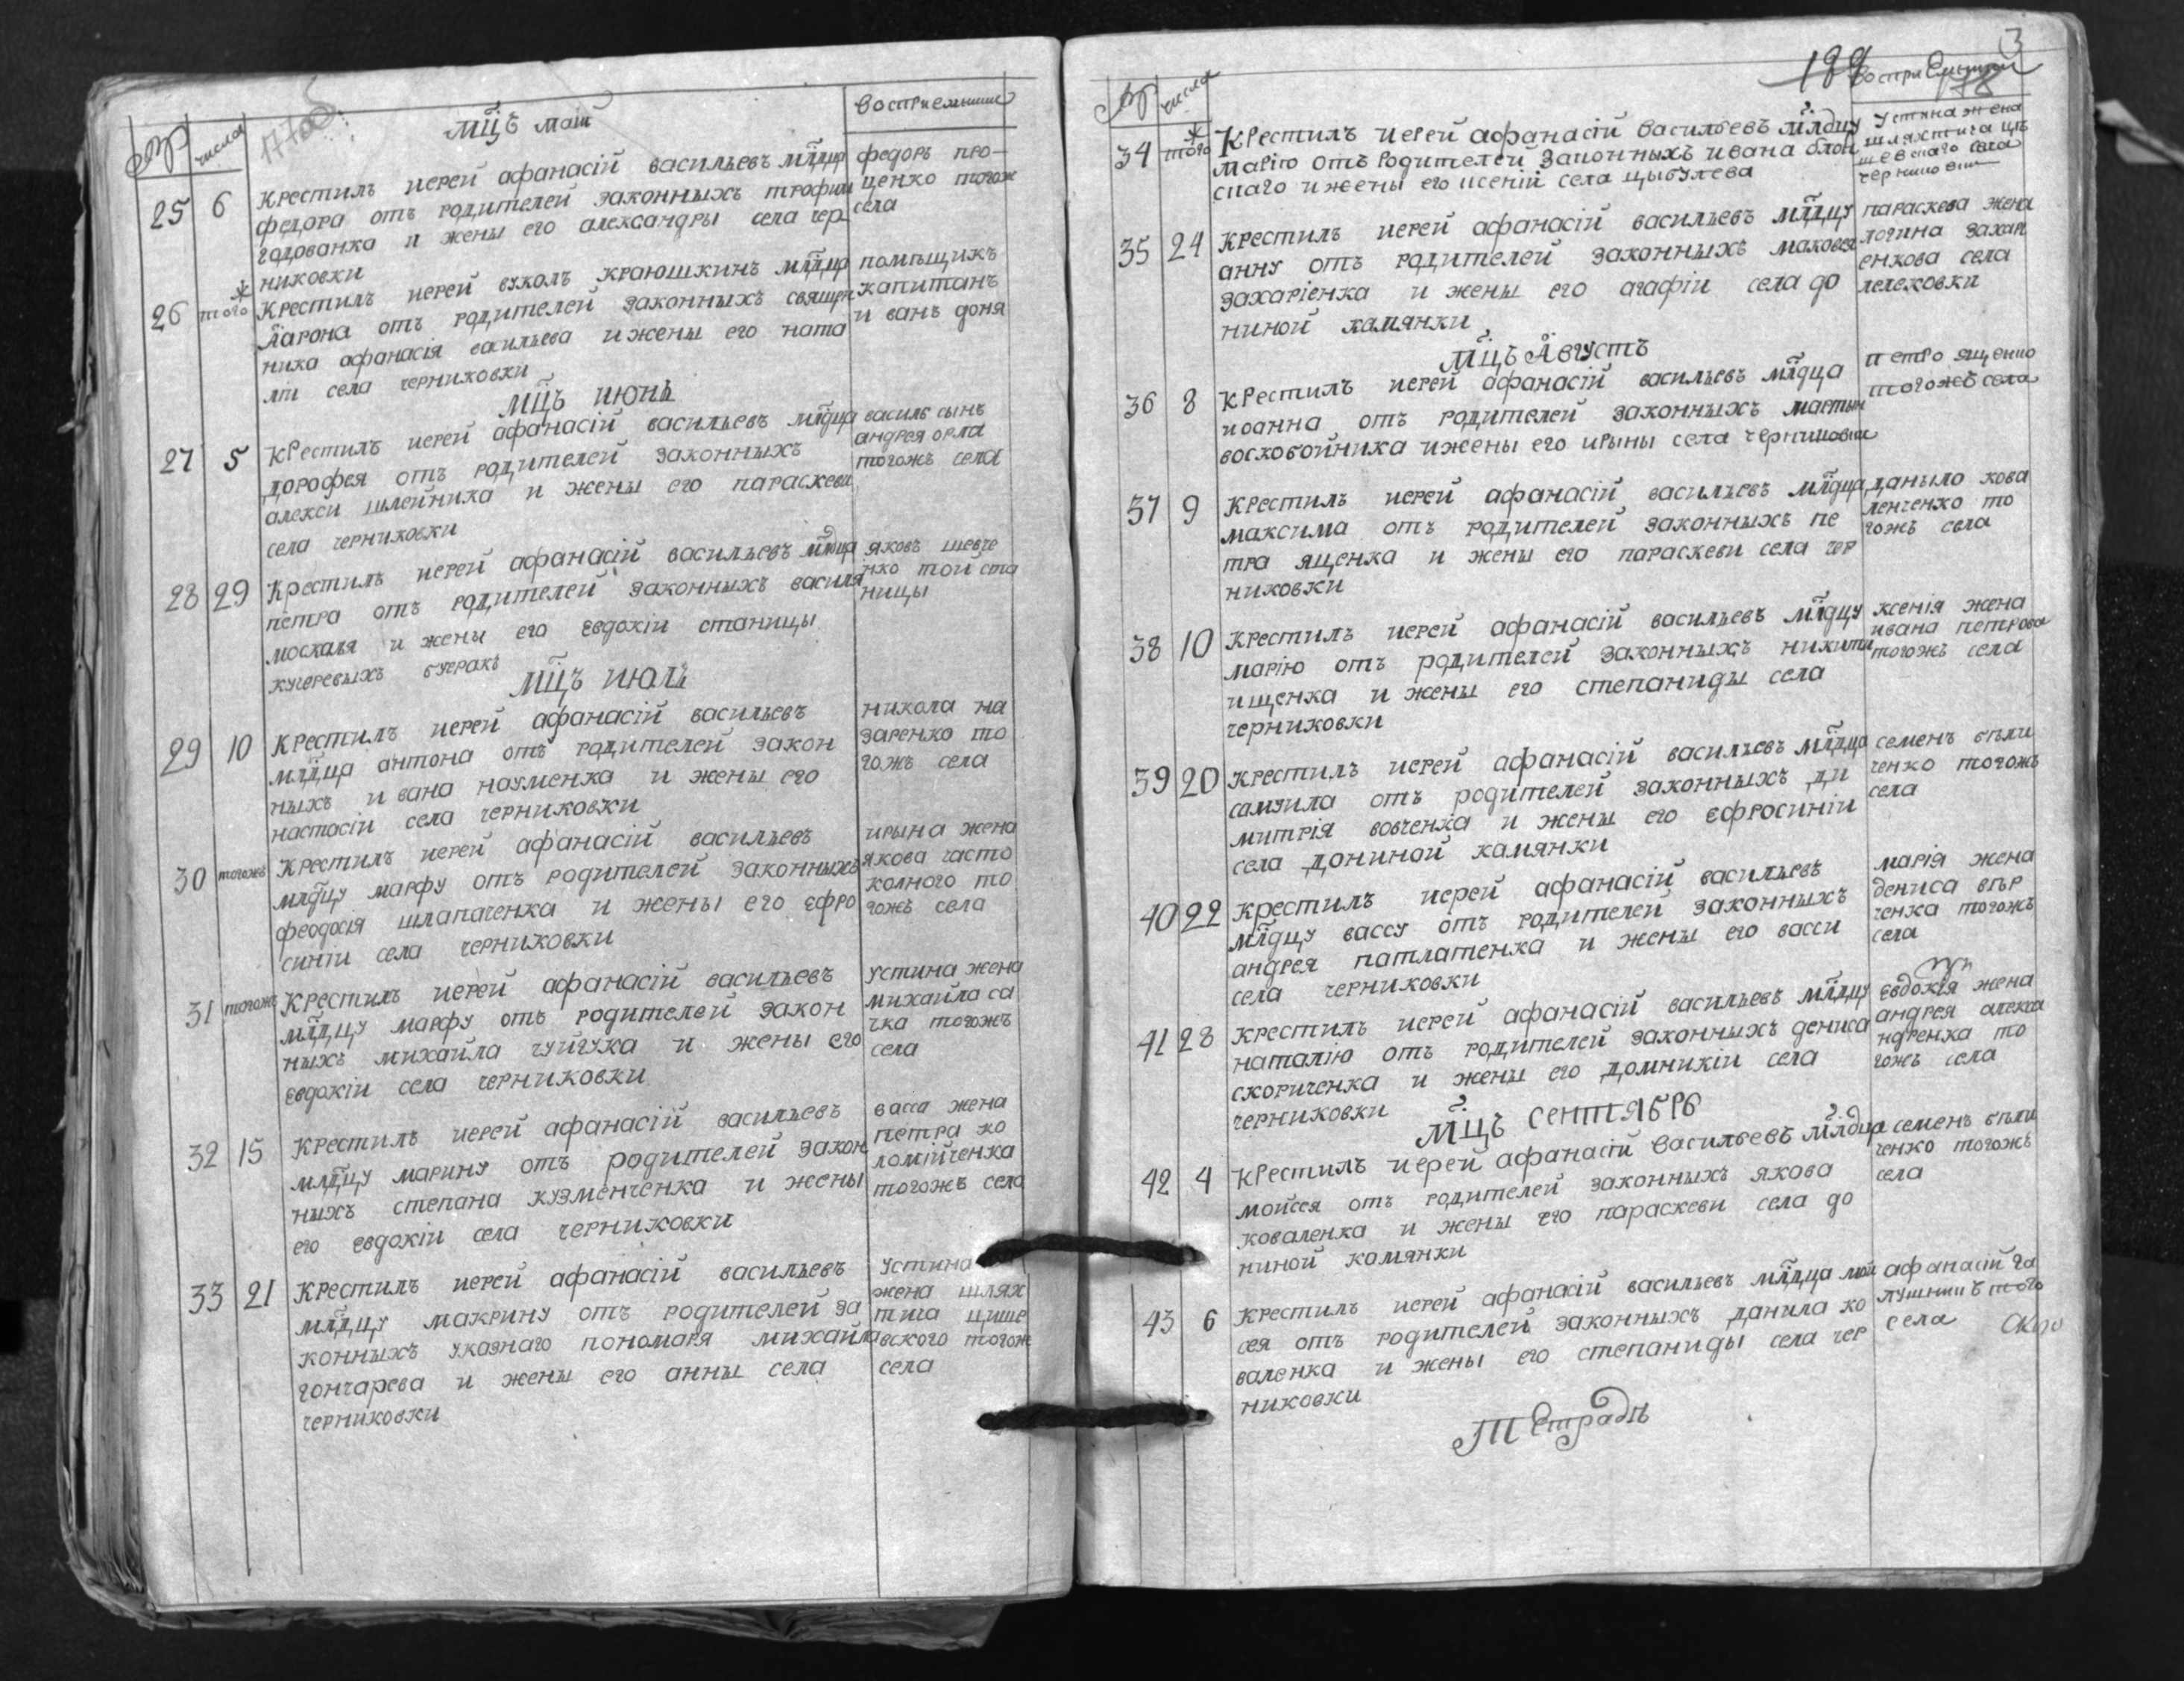 числа
177об
мцъ маій
восприемники
25 6 крестилъ иерей афанасій васильевъ младца
федора отъ родителей законныхъ трофим
годованка и жены его александры села чер
никовки
федоръ про-
ценко тогож
села
26 того крестилъ иерей вуколъ краюшкинъ младца
аарона отъ родителей законныхъ священ
ника афанасія васильева и жены его ната
ліи села черниковки
помѣщикъ
капитанъ
иванъ доня
мцъ июнь
27 5 крестилъ иерей афанасій васильевъ младца
дорофея отъ родителей законныхъ
алекси шлейника и жены его параскеви
села черниковки
василь сынъ
андрея орла
тогожъ села
28 29 крестилъ иерей афанасій васильевъ младца
петра отъ родителей законныхъ василя
москаля и жены его евдокіи станицы
кучеревыхъ буеракъ
яковъ шевче
нко той ста
ницы
мцъ июль
29 10 крестилъ иерей афанасій васильевъ
младца антона отъ родителей закон
ныхъ ивана науменка и жены его
настасіи села черниковки
никола на
заренко то
гожъ села
30 тогожъ крестилъ иерей афанасій васильевъ
младцу марфу отъ родителей законныхъ
феодосія шлапаченка и жены его ефро
синіи села черниковки
ирына жена
якова часто
колного то
гожъ села
31 тогожъ крестилъ иерей афанасій васильевъ
младцу марфу отъ родителей закон
ныхъ михайла чуйгука и жены его
евдокіи села черниковки
устина жена
михайла са
чка тогожъ
села
32 15 крестилъ иерей афанасій васильевъ
младцу марину отъ родителей закон
ныхъ степана кузменченка и жены
его евдокіи села черниковки
васса жена
петра ко
ломійченка
тогожъ села
33 21 крестилъ иерей афанасій васильевъ
младцу макрину отъ родителей за
конныхъ указнаго пономаря михайла
гончарева и жены его анны села
черниковки
устина
жена шлях
тича цише
вского тогож
села
3
числа
восприемники
34 того крестилъ иерей афанасій васильевъ младцу
марію отъ родителей законныхъ ивана
скаго и жены его ксеніи села цыбулева
устина жена
шляхтича ци
шевскаго села
черниковки
35 24 крестилъ иерей афанасій васильевъ младцу
анну отъ родителей законныхъ маковея
захаріенка и жены его агафіи села до
ниной камянки
параскева жена
логина захар
енкова села
пелеховки
мцъ августъ
36 8 крестилъ иерей афанасій васильевъ младца
иоанна отъ родителей законныхъ мартын
воскобойника и жены его ирыны села черниковки
петро ященко
тогожъ села
37 9 крестилъ иерей афанасій васильевъ младца
максима отъ родителей законныхъ пе
тра ященка и жены его параскеви села чер
никовки
даныло кова
ленченко то
гожъ села
38 10 крестилъ иерей афанасій васильевъ младцу
марію отъ родителей законныхъ никиты
ищенка и жены его степаниды села
черниковки
ксенія жена
ивана петрова
тогожъ села
39 20 крестилъ иерей афанасій васильевъ младца
самуила отъ родителей законныхъ ди
митрія вовченка и жены его ефросиніи
села дониной камянки
семенъ били
ченко тогожъ
села
40 22 крестилъ иерей афанасій васильевъ
младцу вассу отъ родителей законныхъ
андрея патлатенка и жены его васси
села черниковки
марія жена
дениса вѣр
ченка тогожъ
села
41 28 крестилъ иерей афанасій васильевъ младцу
наталію отъ родителей законныхъ дениса
скориченка и жены его домникіи села
черниковки
евдокія жена
андрея алекса
ндренка то
гожъ села
мцъ сентябрь
42 4 крестилъ иерей афанасій васильевъ младца
мойсея отъ родителей законныхъ якова
коваленка и жены его параскеви села до
ниной комянки
семенъ били
ченко тогожъ
села
43 6 крестилъ иерей афанасій васильевъ младца мой
сея отъ родителей законныхъ данила ко
валенка и жены его степаниды села чер
никовки
афанасій га
лушникъ того
села
Тетрадь